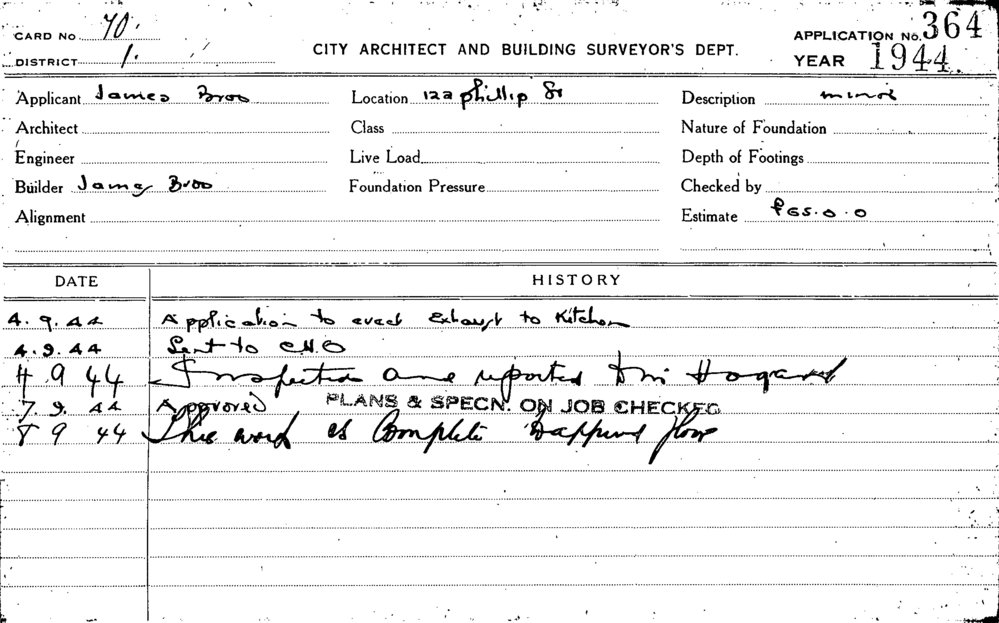 CARD No 70.
DISTRICT 1.
CITY ARCHITECT AND BUILDING SURVEYOR'S DEPT.
APPLICATION No. 364
YEAR 1944.
Applicant James Bros Location 122 phillip St Description minor
Architect Class Nature of Foundation
Engineer Live Load Depth of Footings
Builder James Bros Foundation Pressure Checked by
Alignment Estimate £65.0.0
DATE HISTORY
4.9.44 Application to erect Exhaust to Kitchen
4.9.44 Sent to C.H.O
4 9 44 Inspection and reported
7 9. 44 Approved PLANS & SPECN. ON JOB CHECKED
8 9 44 This work is Complete